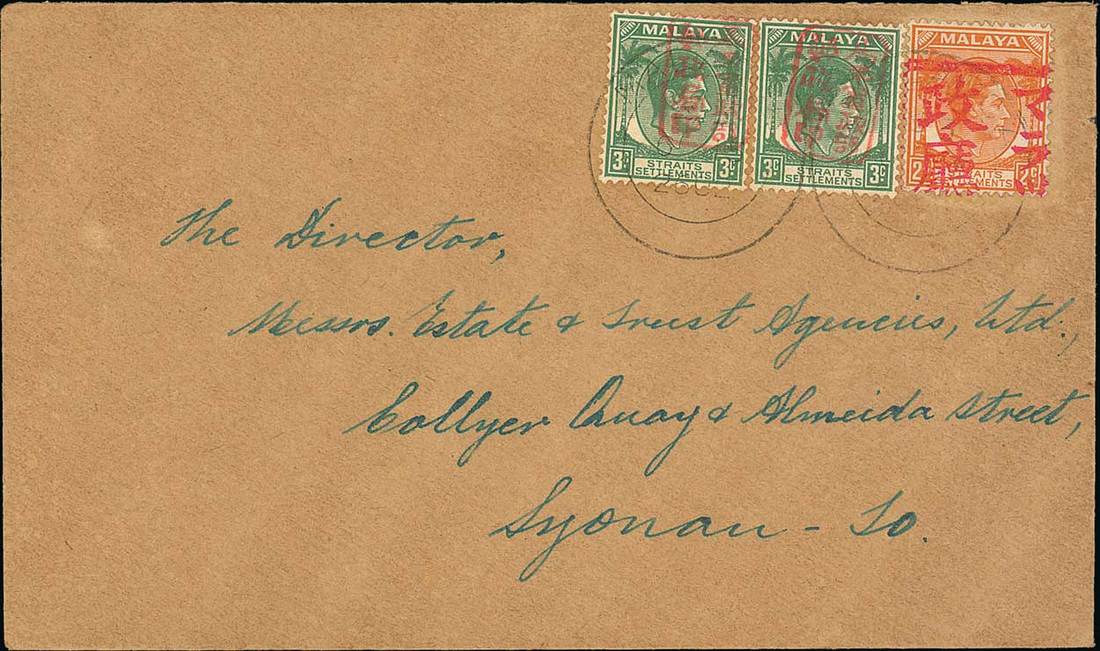 MALAYA MALAYA MALAYA
3c 3c 3c 3c 2c 2c
STRAITS SETTLEMENTS STRAITS SETTLEMENTS STRAITS SETTLEMENTS
The Director,
Messrs. Estate & Trust Agencies, Ltd.,
Collyer Quay & Almeida Street,
Syonan - To.